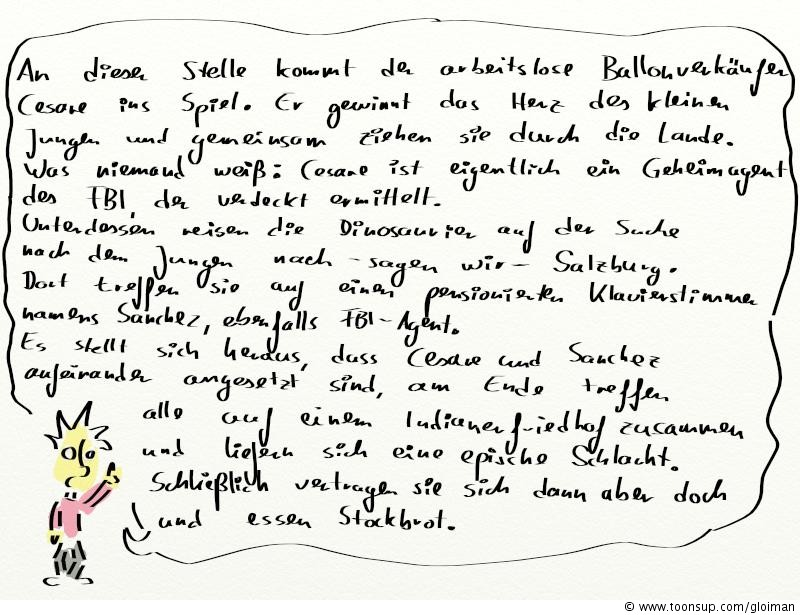 An dieser Stelle kommt der arbeitslose Ballonverkäufer
Cesare ins Spiel. Er gewinnt das Herz des kleinen
Jungen und gemeinsam ziehen sie durch die Lande.
Was niemand weiß: Cesare ist eigentlich ein Geheimagent
des FBI, der verdeckt ermittelt.
Unterdessen reisen die Dinosaurier auf der Suche
nach dem Jungen nach - sagen wir - Salzburg.
Dort treffen sie auf einen pensionierten Klavierstimmer
namens Sanchez, ebenfalls FBI-Agent.
Es stellt sich heraus, dass Cesare und Sanchez
aufeinander angesetzt sind, am Ende treffen
alle auf einem Indianerfriedhof zusammen
und liefern sich eine epische Schlacht.
Schließlich vertragen sie sich dann aber doch
und essen Stockbrot.
© www.toonsup.com/gloiman